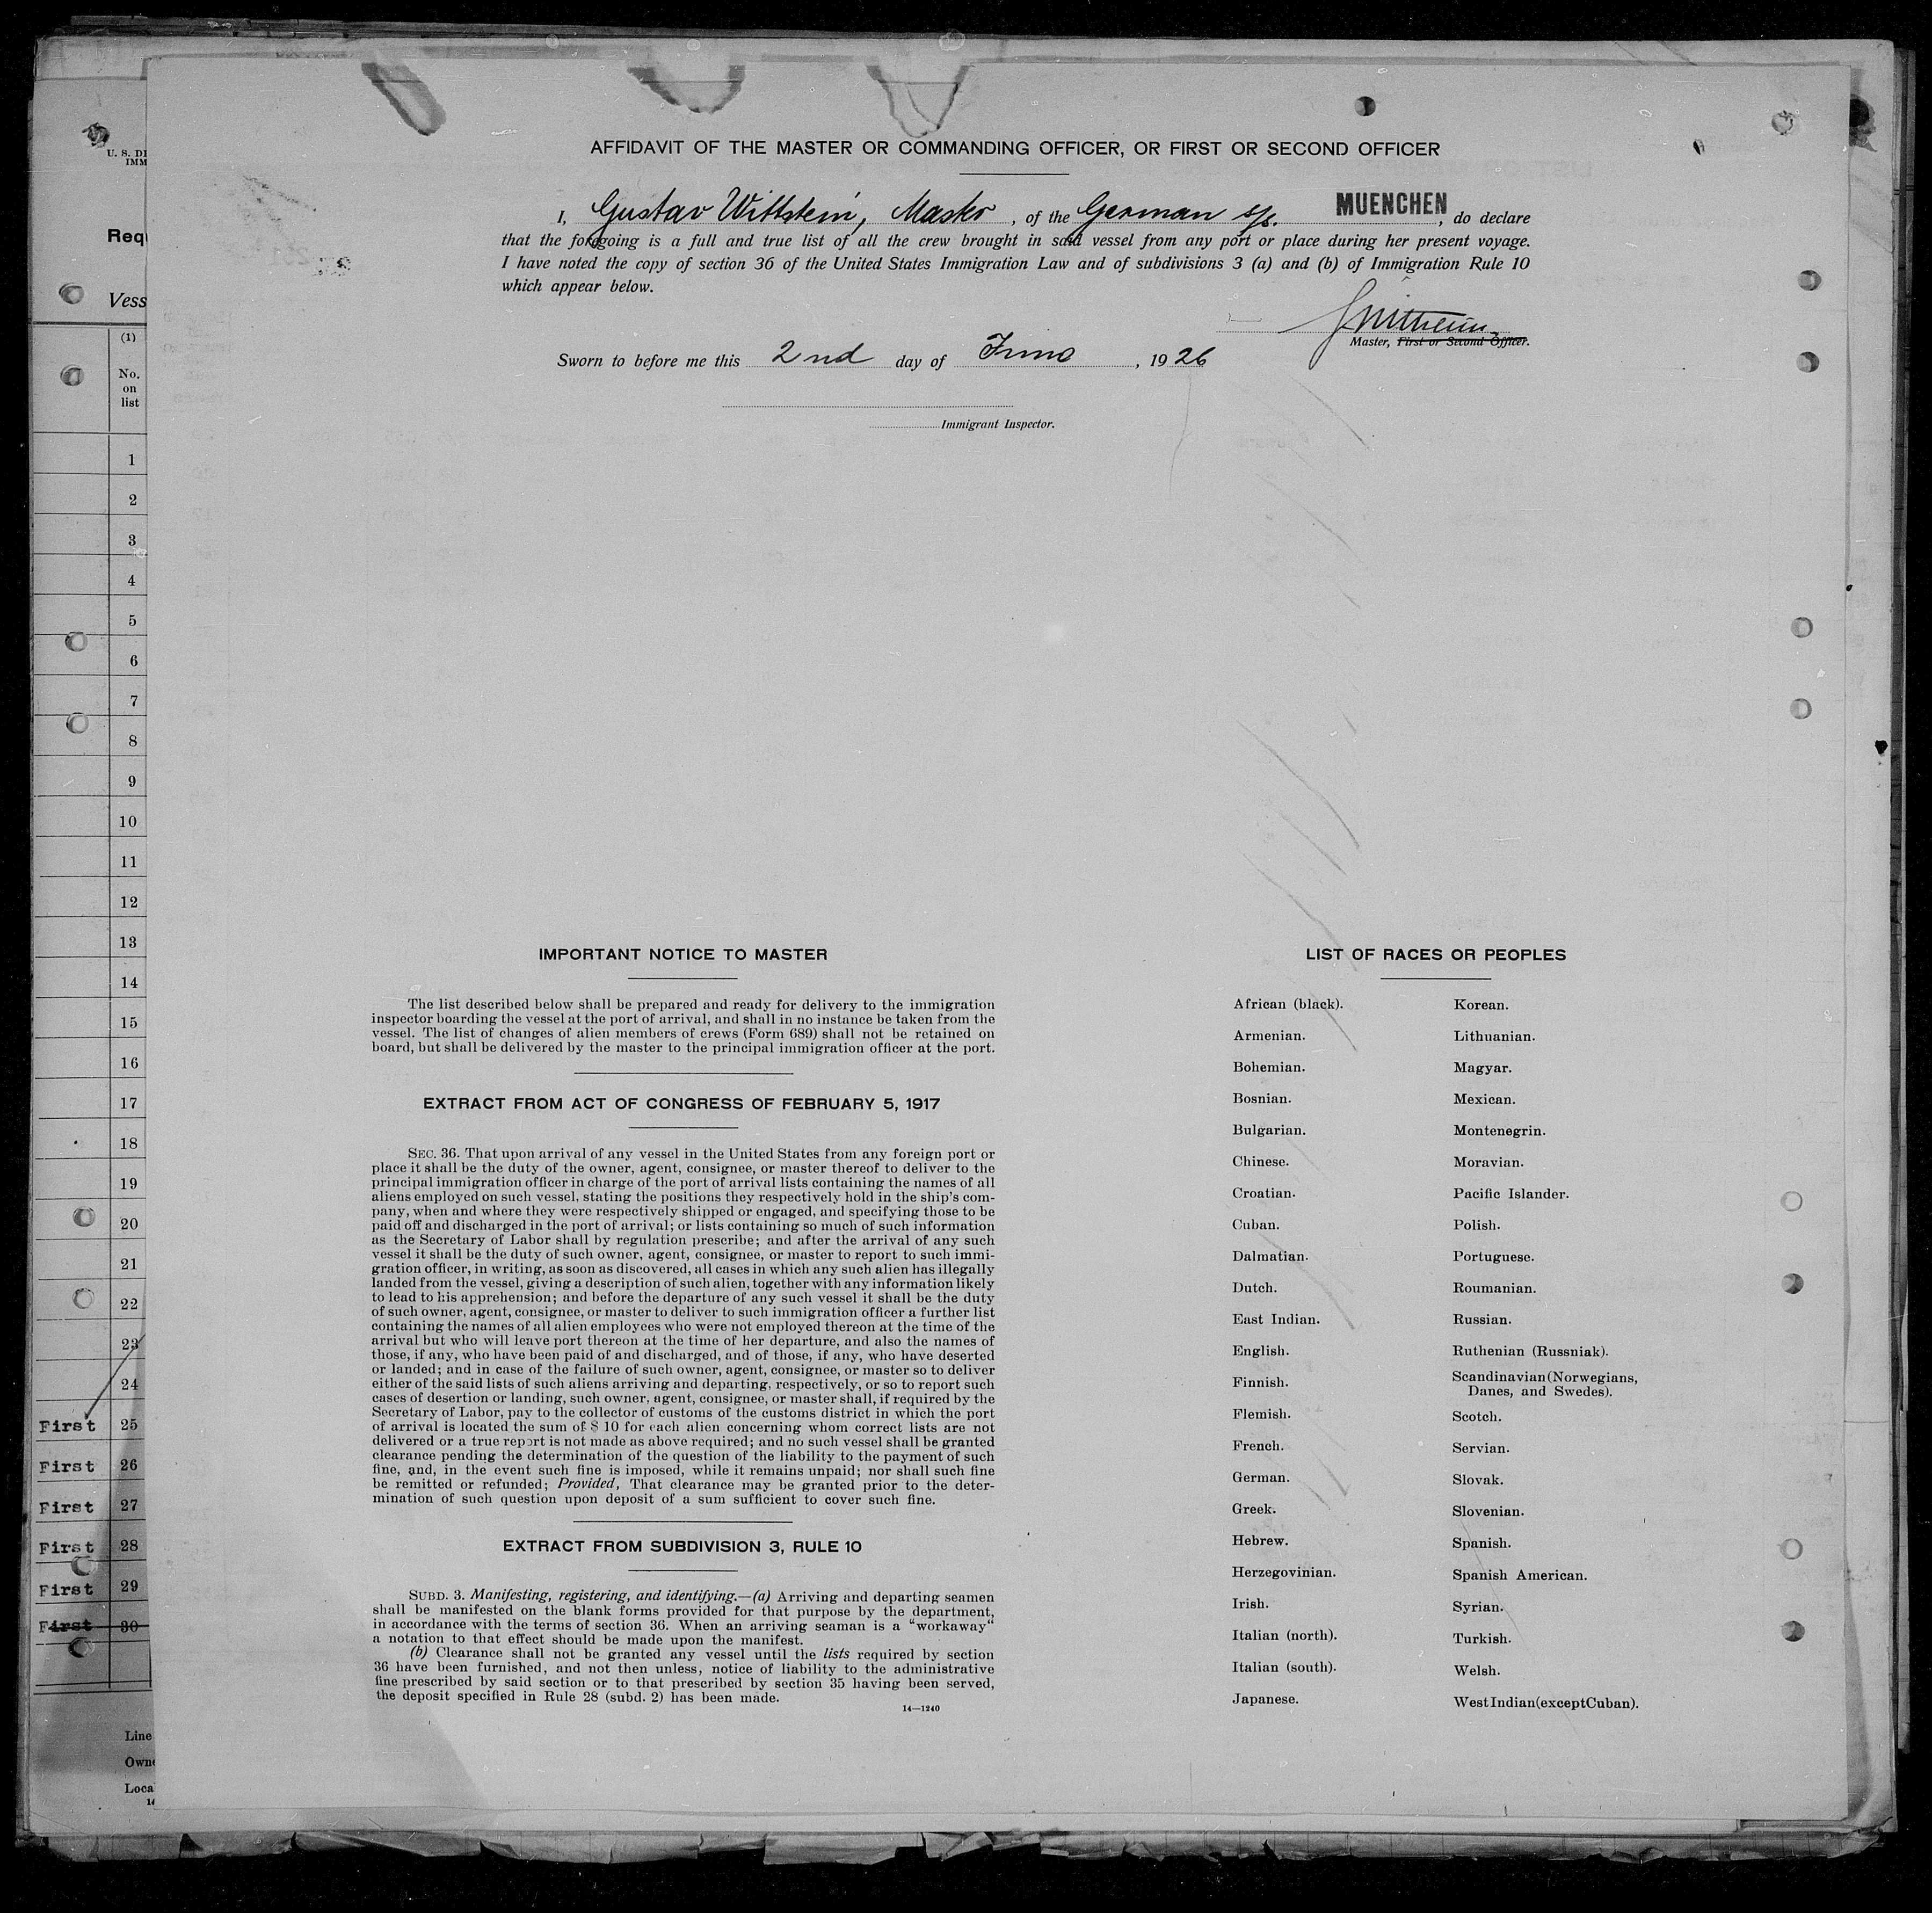 AFFIDAVIT OF THE MASTER OR COMMANDING OFFICER, OR FIRST OR SECOND OFFICER
I, Gustav Wittstein, Master, of the German s/s. MUENCHEN, do declare
that the foregoing is a full and true list of all the crew brought in said vessel from any port or place during her present voyage.
I have noted the copy of section 36 of the United States Immigration Law and of subdivisions 3 (a) and (b) of Immigration Rule 10
which appear below.
Master, First or Second Officer.
Sworn to before me this 2nd day of June, 1926
Immigrant Inspector.
IMPORTANT NOTICE TO MASTER
The list described below shall be prepared and ready for delivery to the immigration
inspector boarding the vessel at the port of arrival, and shall in no instance be taken from the
vessel. The list of changes of alien members of crews (Form 689) shall not be retained on
board, but shall be delivered by the master to the principal immigration officer at the port.
EXTRACT FROM ACT OF CONGRESS OF FEBRUARY 5, 1917
SEC. 36. That upon arrival of any vessel in the United States from any foreign port or
place it shall be the duty of the owner, agent, consignee, or master thereof to deliver to the
principal immigration officer in charge of the port of arrival lists containing the names of all
aliens employed on such vessel, stating the positions they respectively hold in the ship's com-
pany, when and where they were respectively shipped or engaged, and specifying those to be
paid off and discharged in the port of arrival; or lists containing so much of such information
as the Secretary of Labor shall by regulation prescribe; and after the arrival of any such
vessel it shall be the duty of such owner, agent, consignee, or master to report to such immi-
gration officer, in writing, as soon as discovered, all cases in which any such alien has illegally
landed from the vessel, giving a description of such alien, together with any information likely
to lead to his apprehension; and before the departure of any such vessel it shall be the duty
of such owner, agent, consignee, or master to deliver to such immigration officer a further list
containing the names of all alien employees who were not employed thereon at the time of the
arrival but who will leave port thereon at the time of her departure, and also the names of
those, if any, who have been paid of and discharged, and of those, if any, who have deserted
or landed; and in case of the failure of such owner, agent, consignee, or master so to deliver
either of the said lists of such aliens arriving and departing, respectively, or so to report such
cases of desertion or landing, such owner, agent, consignee, or master shall, if required by the
Secretary of Labor, pay to the collector of customs of the customs district in which the port
of arrival is located the sum of $ 10 for each alien concerning whom correct lists are not
delivered or a true report is not made as above required; and no such vessel shall be granted
clearance pending the determination of the question of the liability to the payment of such
fine, and, in the event such fine is imposed, while it remains unpaid; nor shall such fine
be remitted or refunded; Provided, That clearance may be granted prior to the deter-
mination of such question upon deposit of a sum sufficient to cover such fine.
EXTRACT FROM SUBDIVISION 3, RULE 10
SUBD. 3. Manifesting, registering, and identifying.—(a) Arriving and departing seamen
shall be manifested on the blank forms provided for that purpose by the department,
in accordance with the terms of section 36. When an arriving seaman is a "workaway"
a notation to that effect should be made upon the manifest.
(b) Clearance shall not be granted any vessel until the lists required by section
36 have been furnished, and not then unless, notice of liability to the administrative
fine prescribed by said section or to that prescribed by section 35 having been served,
the deposit specified in Rule 28 (subd. 2) has been made.
14—1240
LIST OF RACES OR PEOPLES
African (black).
Armenian.
Bohemian.
Bosnian.
Bulgarian.
Chinese.
Croatian.
Cuban.
Dalmatian.
Dutch.
East Indian.
English.
Finnish.
Flemish.
French.
German.
Greek.
Hebrew.
Herzegovinian.
Irish.
Italian (north).
Italian (south).
Japanese.
Korean.
Lithuanian.
Magyar.
Mexican.
Montenegrin.
Moravian.
Pacific Islander.
Polish.
Portuguese.
Roumanian.
Russian.
Ruthenian (Russniak).
Scandinavian (Norwegians,
Danes, and Swedes).
Scotch.
Servian.
Slovak.
Slovenian.
Spanish.
Spanish American.
Syrian.
Turkish.
Welsh.
West Indian (except Cuban).
U. S. DE
IMM
Requ
Vess
(1)
No.
on
list
1
2
3
4
5
6
7
8
9
10
11
12
13
14
15
16
17
18
19
20
21
22
23
24
First 25
First 26
First 27
First 28
First 29
First 30
Line
Owne
Loca